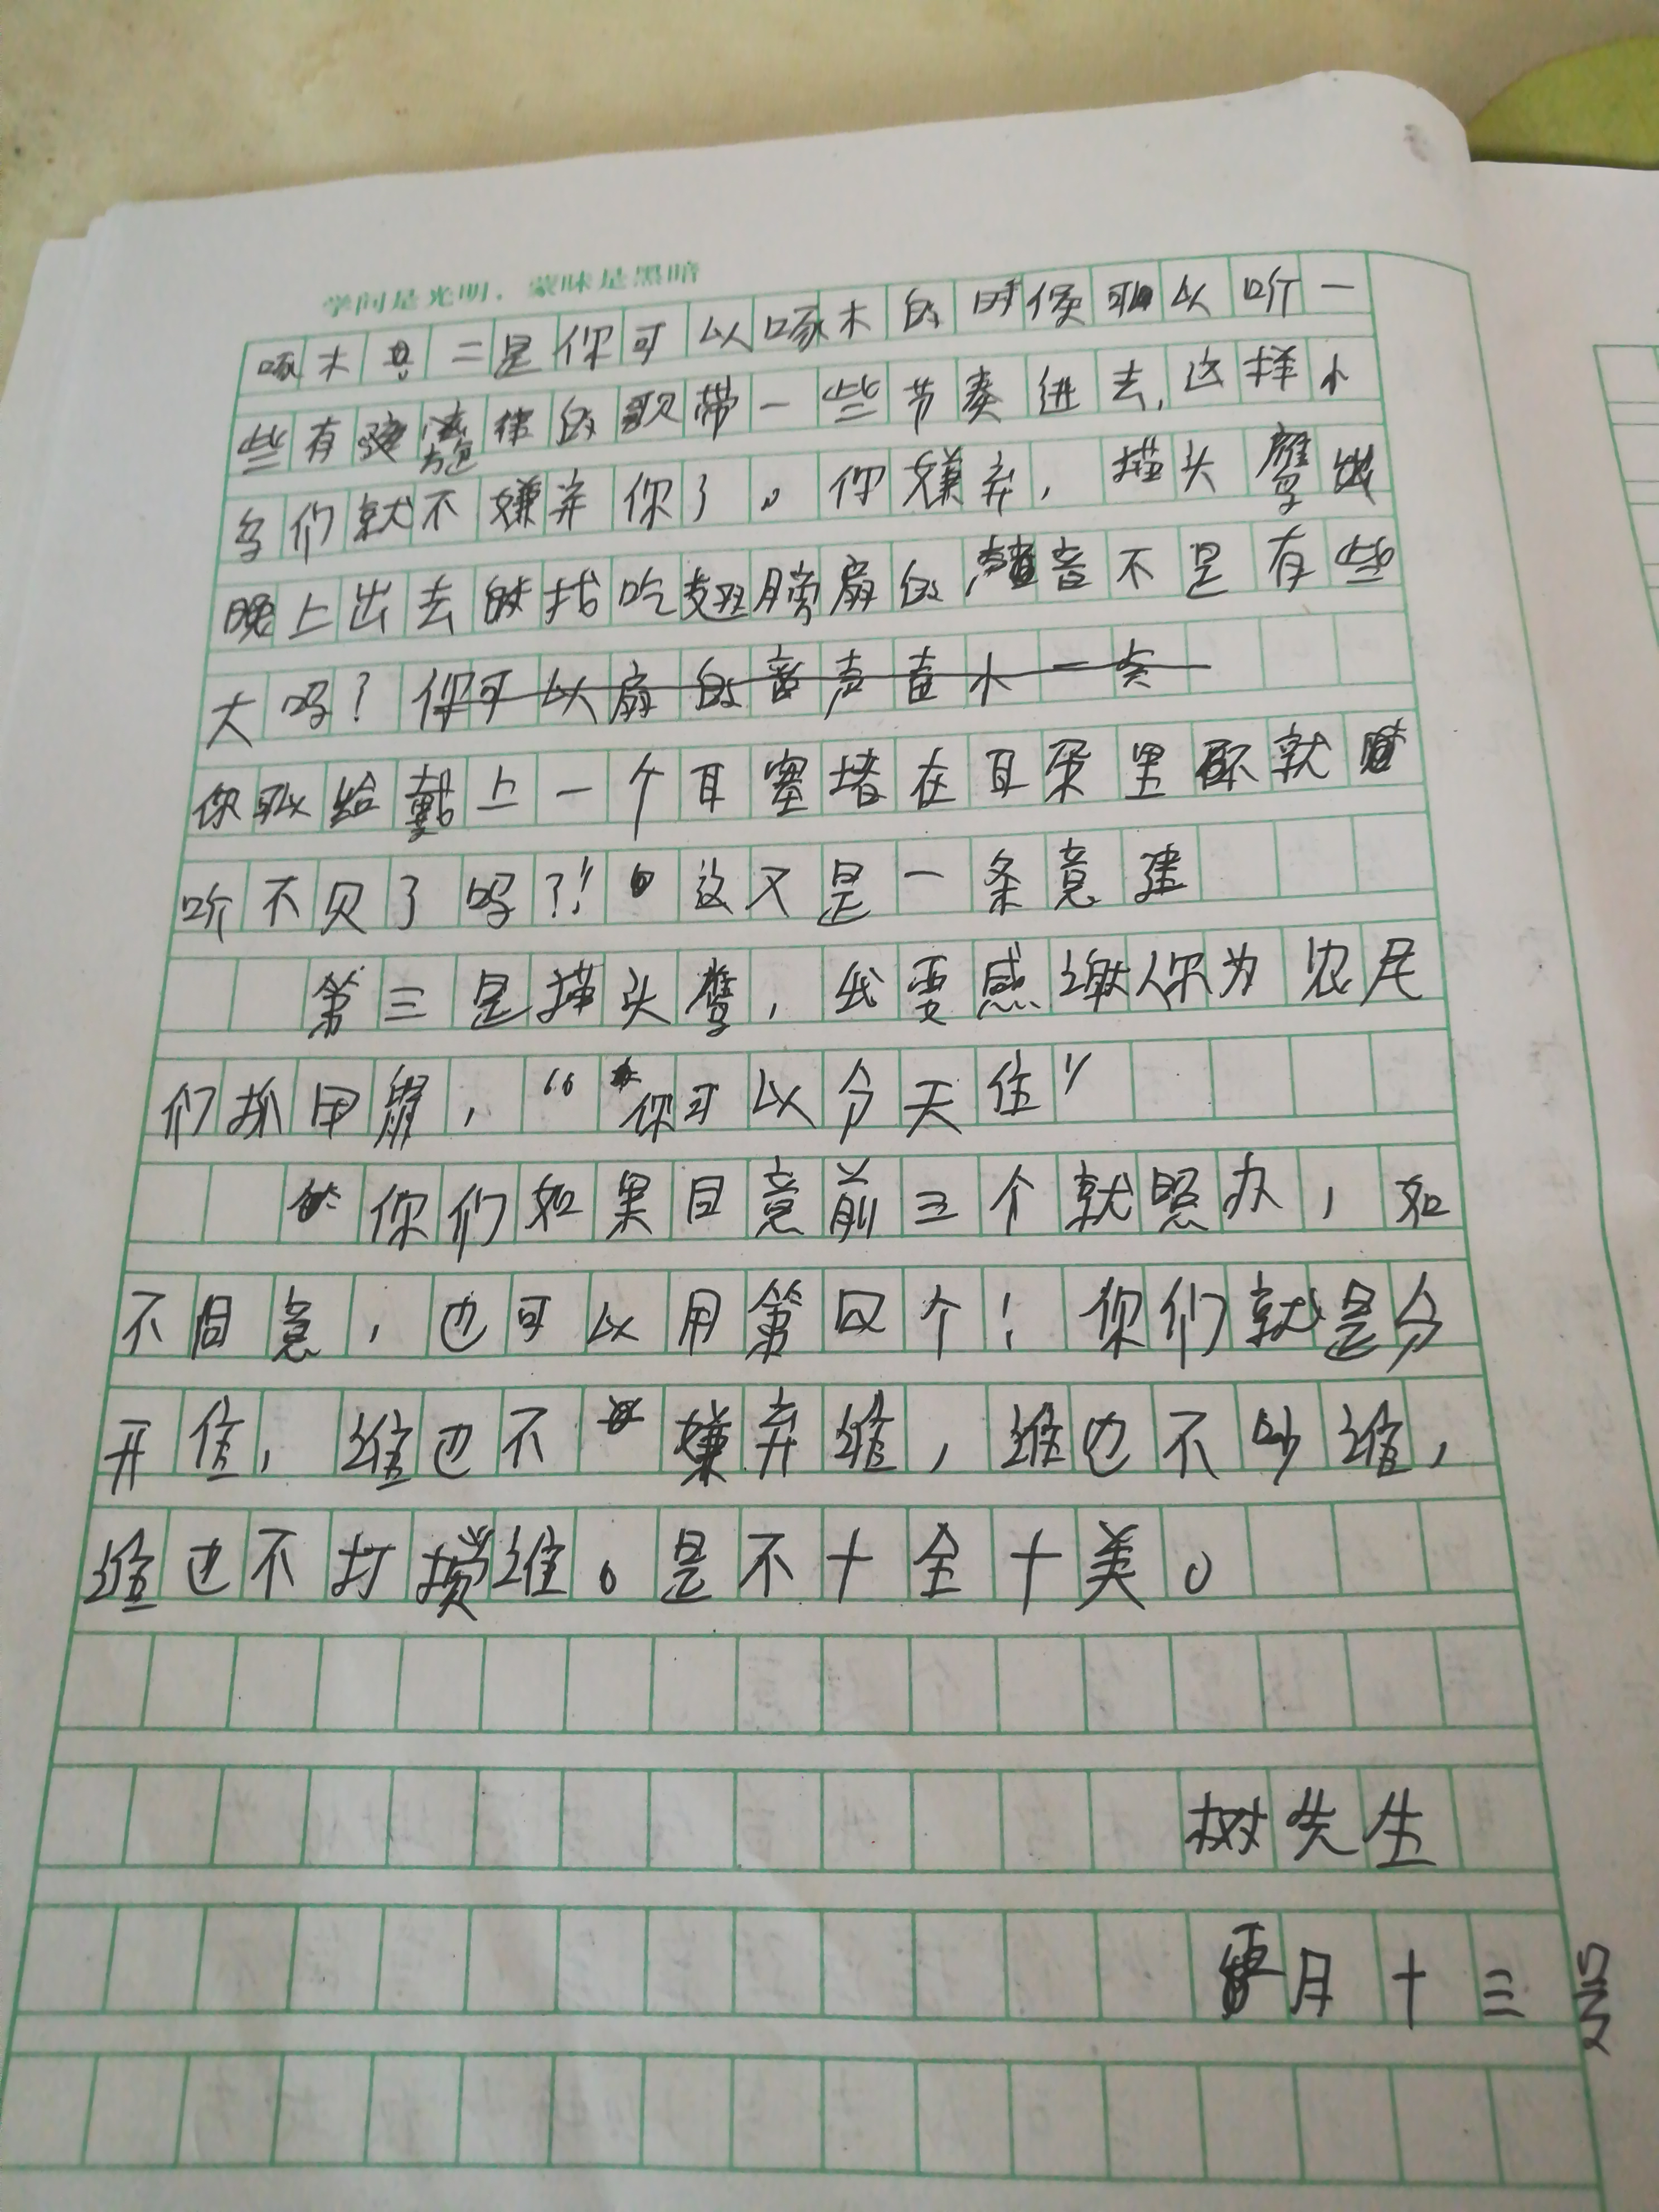 学问是光明，蒙昧是黑暗
啄木 二是你可以啄木的时候可以听一
些有 旋律的歌带一些节奏进去，这样小
鸟们就不嫌弃你了。你嫌弃，猫头鹰
晚上出去 找吃翅膀扇的声音不是有些
大吗？你可以扇的 声音小一
你可以给戴上一个耳塞堵在耳朵里 不就
听不见了吗？！这又是一条意建
第三是猫头鹰，我要感谢你为农民
们抓田鼠，“你可以今天住”
你们如果同意前三个就照办，如
不同意，也可以用第四个！你们就是分
开住，谁也不嫌弃谁，谁也不吵谁，
谁也不打搅谁。是不十全十美。
树先生
月十三